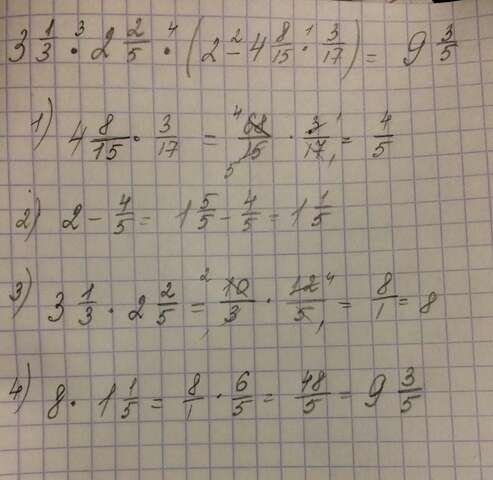 3 1/3 ·³ 2 2/5 ·⁴ (2 -² 4 8/15 ·¹ 3/17) = 9 3/5
1) 4 8/15 · 3/17 = ⁴68/15₅ · 3¹/17₁ = 4/5
2) 2 - 4/5 = 1 5/5 - 4/5 = 1 1/5
3) 3 1/3 · 2 2/5 = ²10/3₁ · 12⁴/5₁ = 8/1 = 8
4) 8 · 1 1/5 = 8/1 · 6/5 = 48/5 = 9 3/5